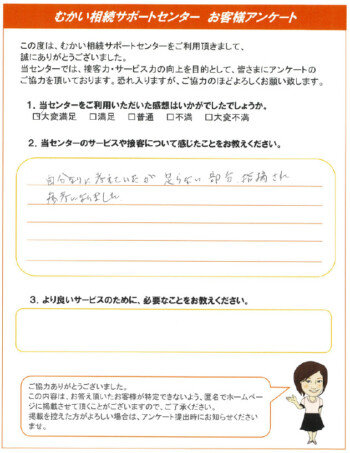 むかい相続サポートセンター お客様アンケート
この度は、むかい相続サポートセンターをご利用頂きまして、
誠にありがとうございました。
当センターでは、接客力・サービス力の向上を目的として、皆さまにアンケートの
ご協力を頂いております。恐れ入りますが、ご協力のほどよろしくお願い致します。
1. 当センターをご利用いただいた感想はいかがでしたでしょうか。
☑大変満足 □満足 □普通 □不満 □大変不満
2. 当センターのサービスや接客について感じたことをお教えください。
自分なりに考えていたが 足らない 部分 指摘され
参考になりました
3. より良いサービスのために、必要なことをお教えください。
ご協力ありがとうございました。
この内容は、お答え頂いたお客様が特定できないよう、匿名でホームページ
に掲載させて頂くことがございますので、ご了承ください。
掲載を控えた方がよろしい場合は、アンケート提出時にお知らせくださいま
せ。